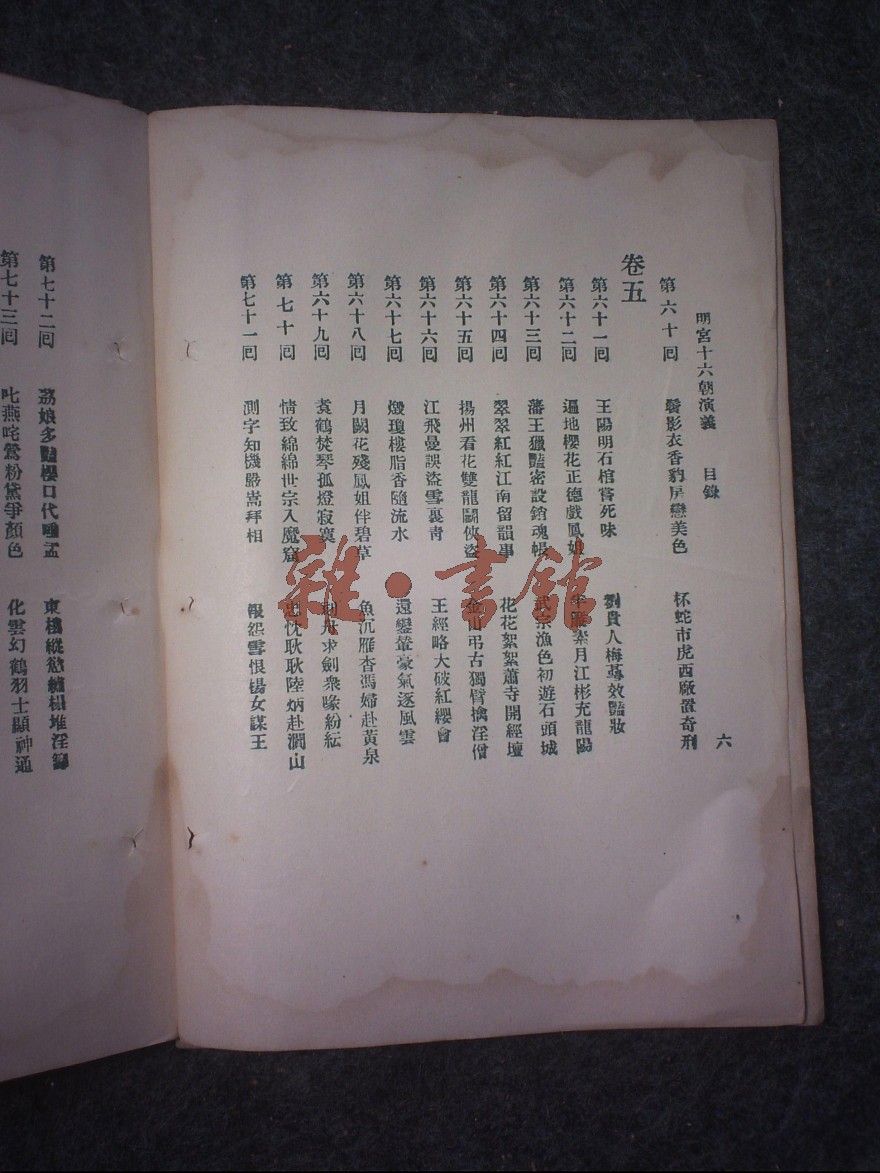 明宮十六朝演義 目錄 六
第六十回 鬢影衣香豹房戀美色 杯蛇市虎西廠置奇刑
卷五
第六十一回 王陽明石棺嘗死味 劉貴人梅萼效豔妝
第六十二回 遍地櫻花正德戲鳳姐 半簾素月江彬充龍陽
第六十三回 藩王獵豔密設銷魂帳 武宗漁色初遊石頭城
第六十四回 翠翠紅紅江南留韻事 花花絮絮蕭寺開經壇
第六十五回 揚州看花雙龍鬭俠盜 金山弔古獨臂擒淫僧
第六十六回 江飛曼誤盜雪裏青 王經略大破紅纓會
第六十七回 燬瓊樓脂香隨流水 還鑾輦豪氣逐風雲
第六十八回 月闕花殘鳳姐伴碧草 魚沉雁杳馮婦赴黃泉
第六十九回 煑鶴焚琴孤燈寂寞 刻舟求劍衆喙紛紜
第七十回 情致綿綿世宗入魔窟 忠忱耿耿陸炳赴澗山
第七十一回 測字知機嚴嵩拜相 報怨雪恨楊女謀王
第七十二回 荔娘多豔櫻口代唾盂 東樓縱慾繡榻堆淫籌
第七十三回 叱燕咤鶯粉黛爭顏色 化雲幻鶴羽士顯神通
雜·書館